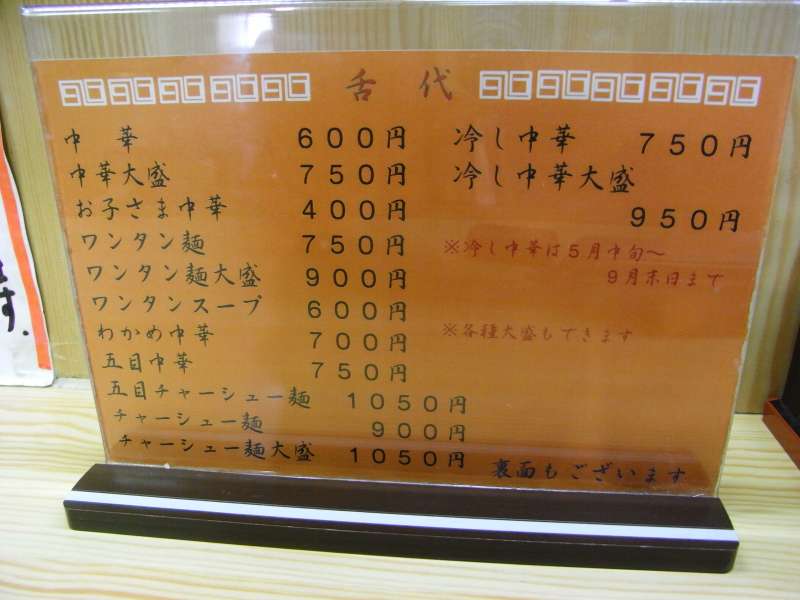 舌代
中華 600円
中華大盛 750円
お子さま中華 400円
ワンタン麺 750円
ワンタン麺大盛 900円
ワンタンスープ 600円
わかめ中華 700円
五目中華 750円
五目チャーシュー麺 1050円
チャーシュー麺 900円
チャーシュー麺大盛 1050円
冷し中華 750円
冷し中華大盛
950円
※冷し中華は5月中旬～
9月末日まで
※各種大盛もできます
裏面もございます
す.